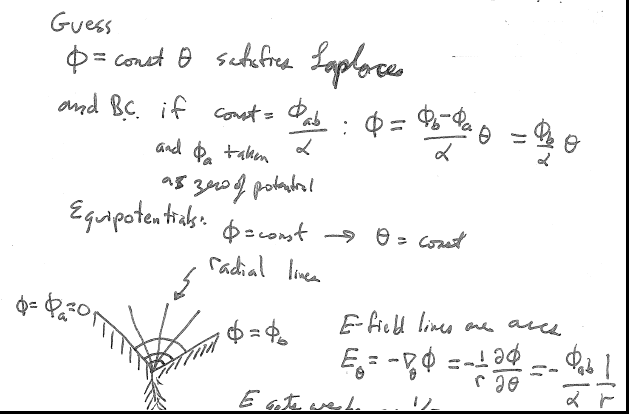 Guess
Φ = const θ satisfies Laplaces
and B.C. if const = Φab/α : Φ = (Φb-Φa)/α θ = Φb/α θ
and Φa taken
as zero of potential
Equipotentials: Φ = const → θ = const
radial lines
Φ = Φa = 0
Φ = Φb
E-field lines are arcs
Eθ = -∇θΦ = -1/r ∂Φ/∂θ = -Φab/α 1/r
E gets